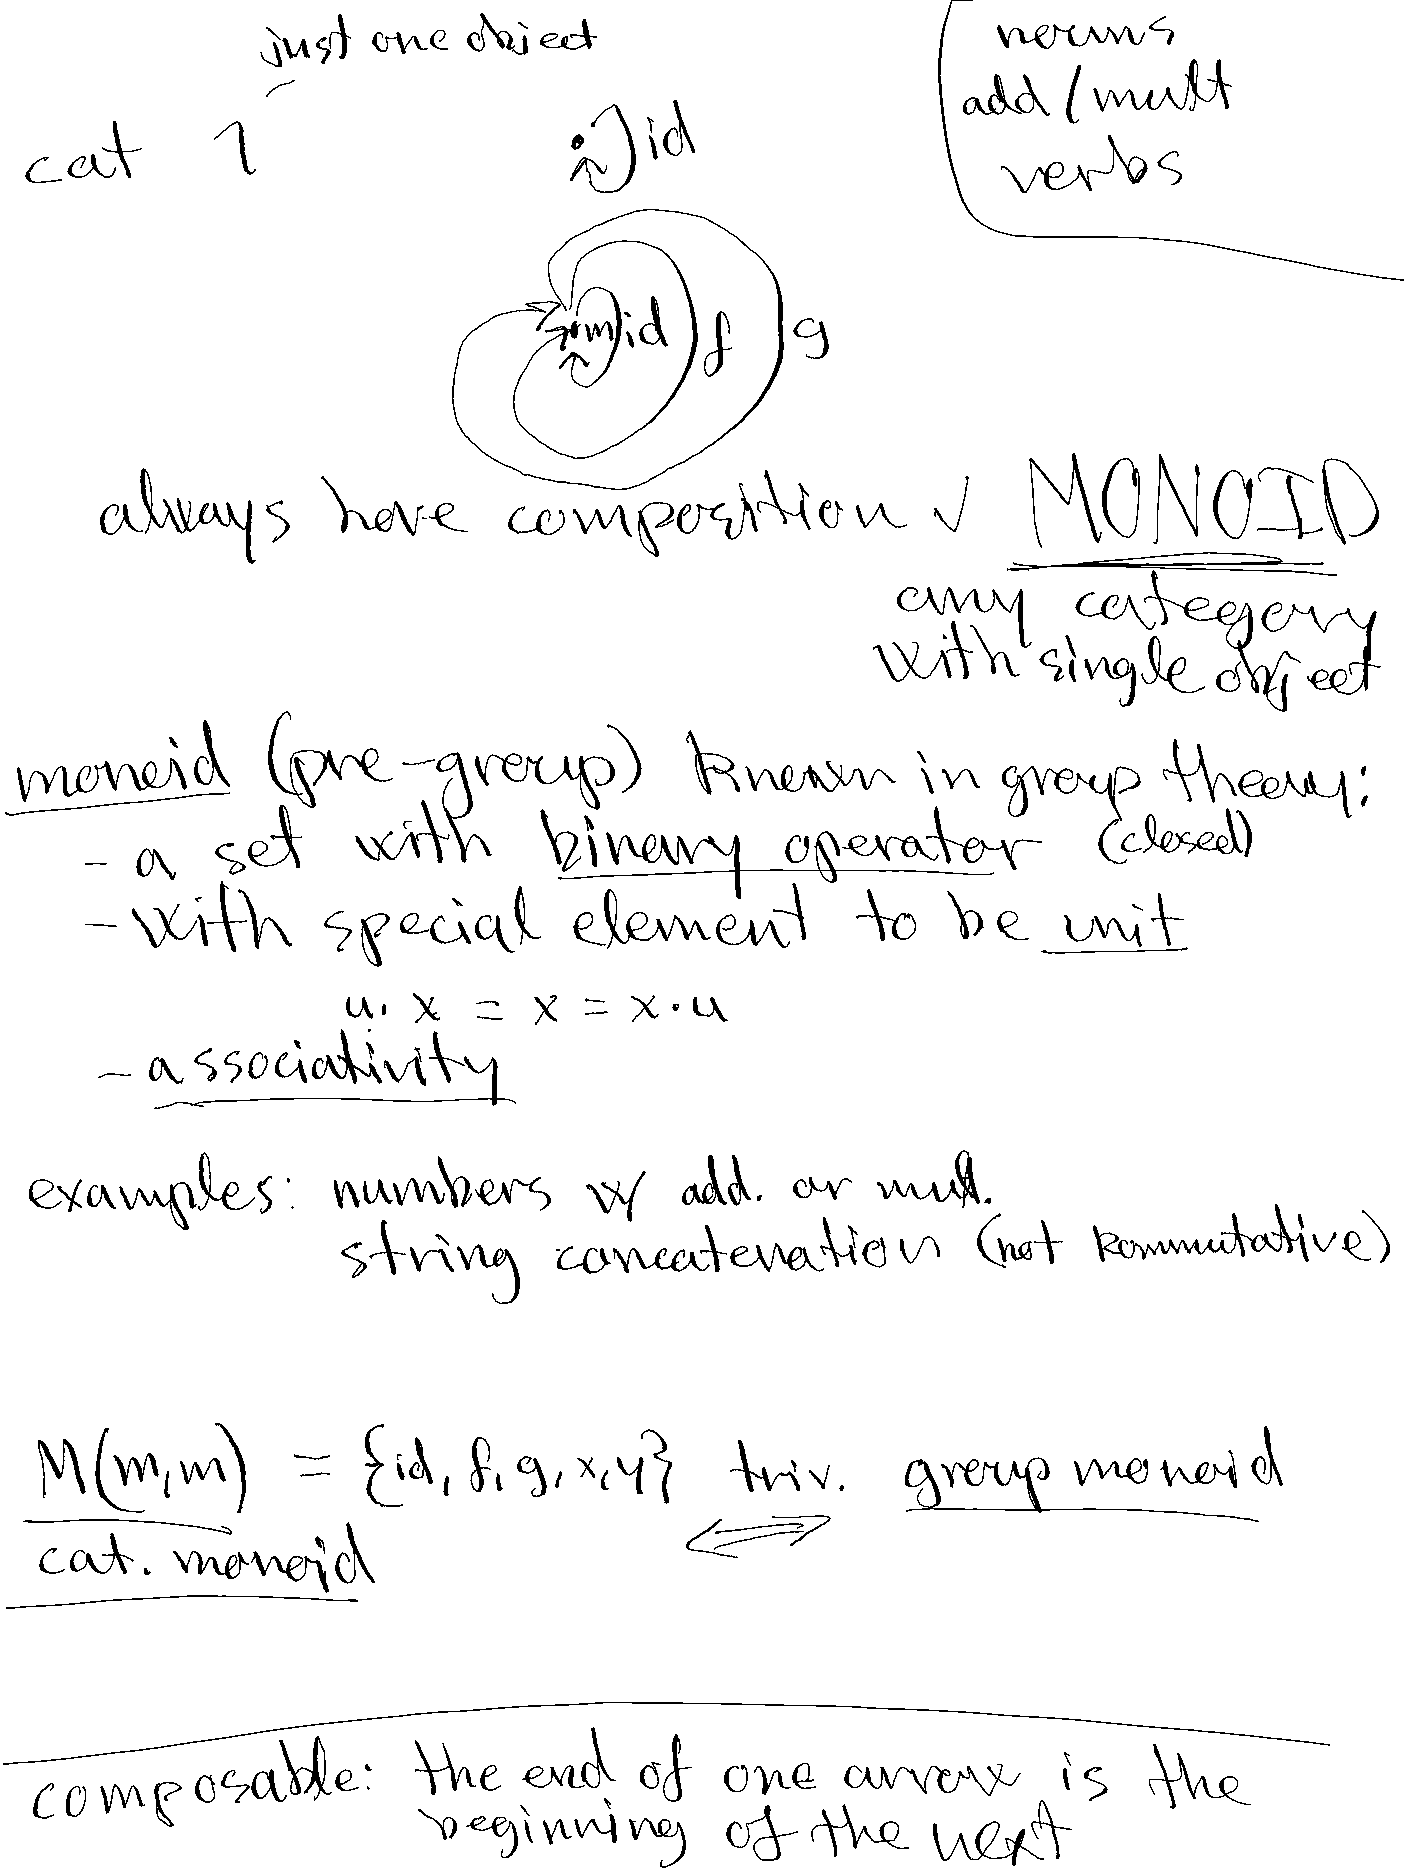 just one object
nouns
add / mult
verbs
cat 1
id
m id f g
always have composition ✓ MONOID
any category
with single object
monoid (pre-group) known in group theory:
- a set with binary operator (closed)
- with special element to be unit
u · x = x = x · u
- associativity
examples: numbers w/ add. or mult.
string concatenation (not kommutative)
M(m,m) = {id, f, g, x, y} triv. group monoid
⟺
cat. monoid
composable: the end of one arrow is the
beginning of the next